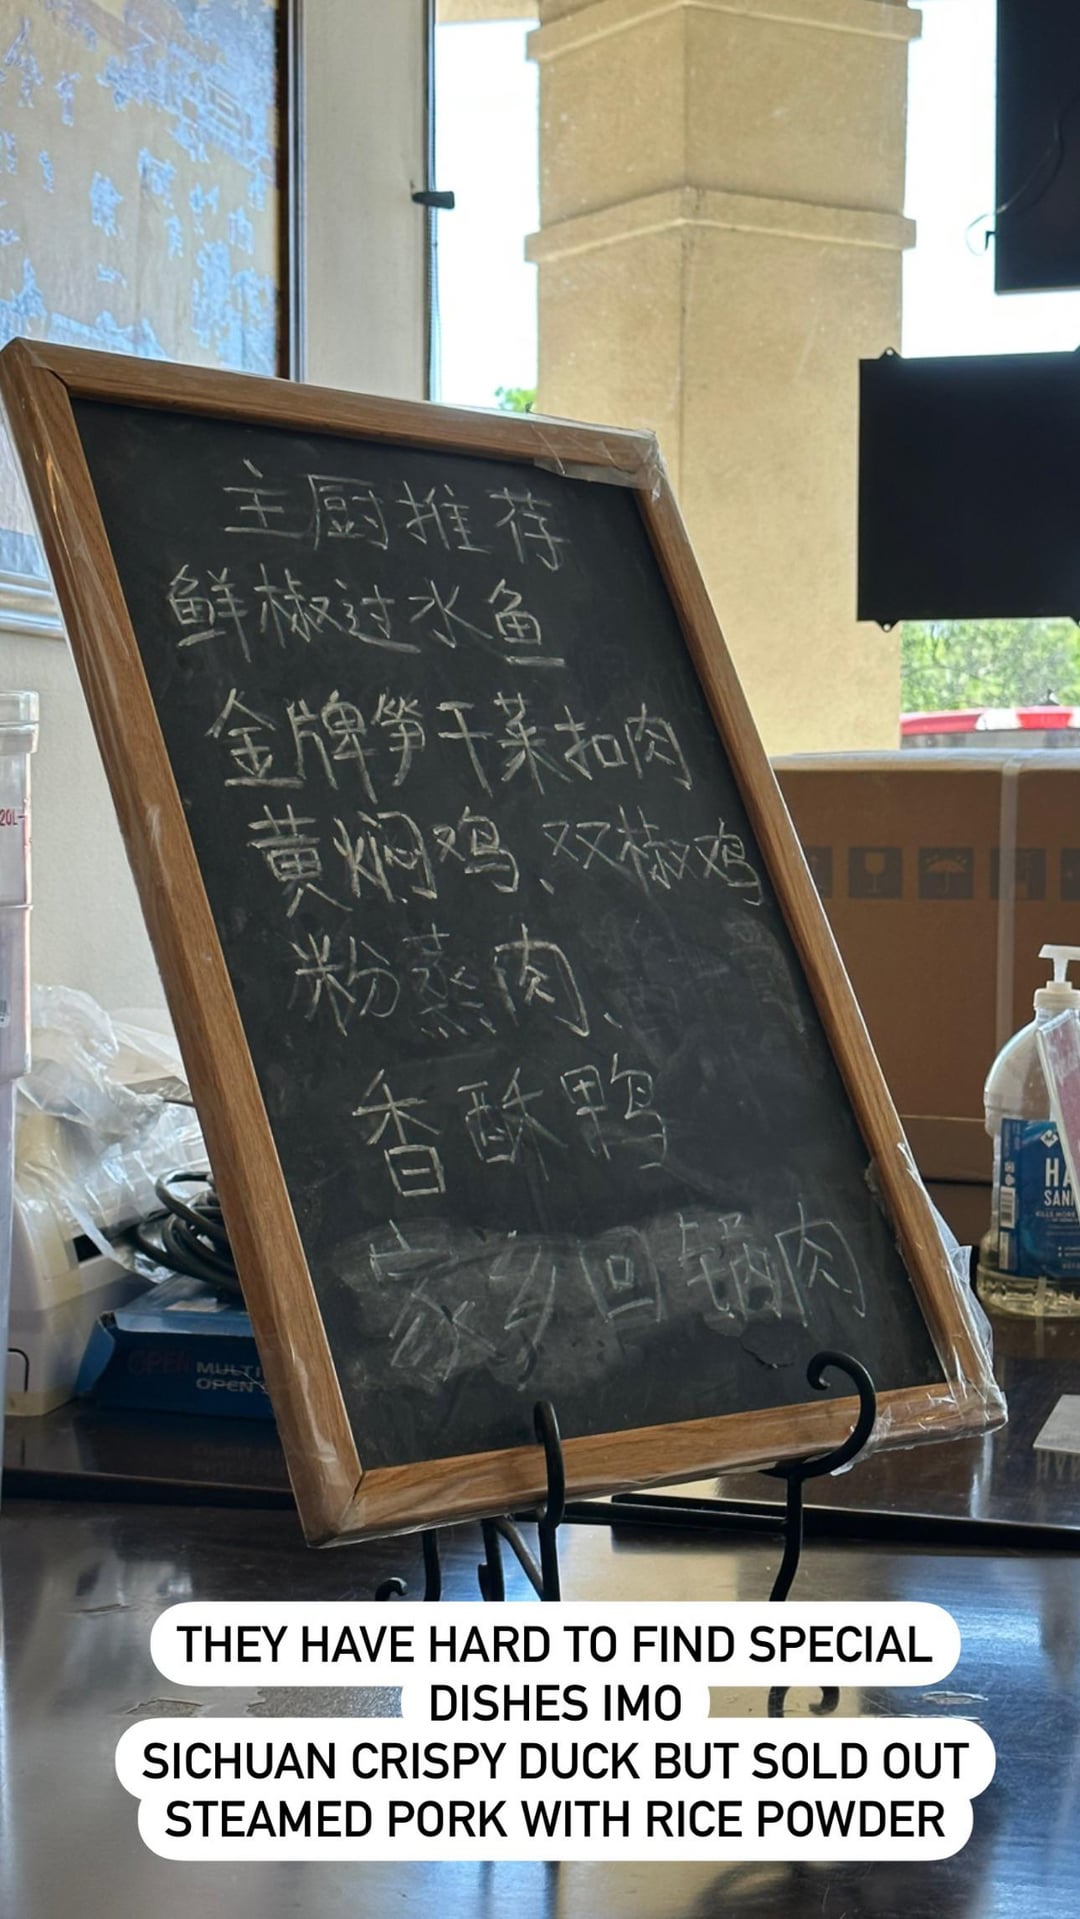 主厨推荐
鲜椒过水鱼
金牌笋干菜扣肉
黄焖鸡、双椒鸡
粉蒸肉、
香酥鸭
家乡回锅肉
20L
MULTI
OPEN
HA
SANI
KILLS MORE
THEY HAVE HARD TO FIND SPECIAL
DISHES IMO
SICHUAN CRISPY DUCK BUT SOLD OUT
STEAMED PORK WITH RICE POWDER